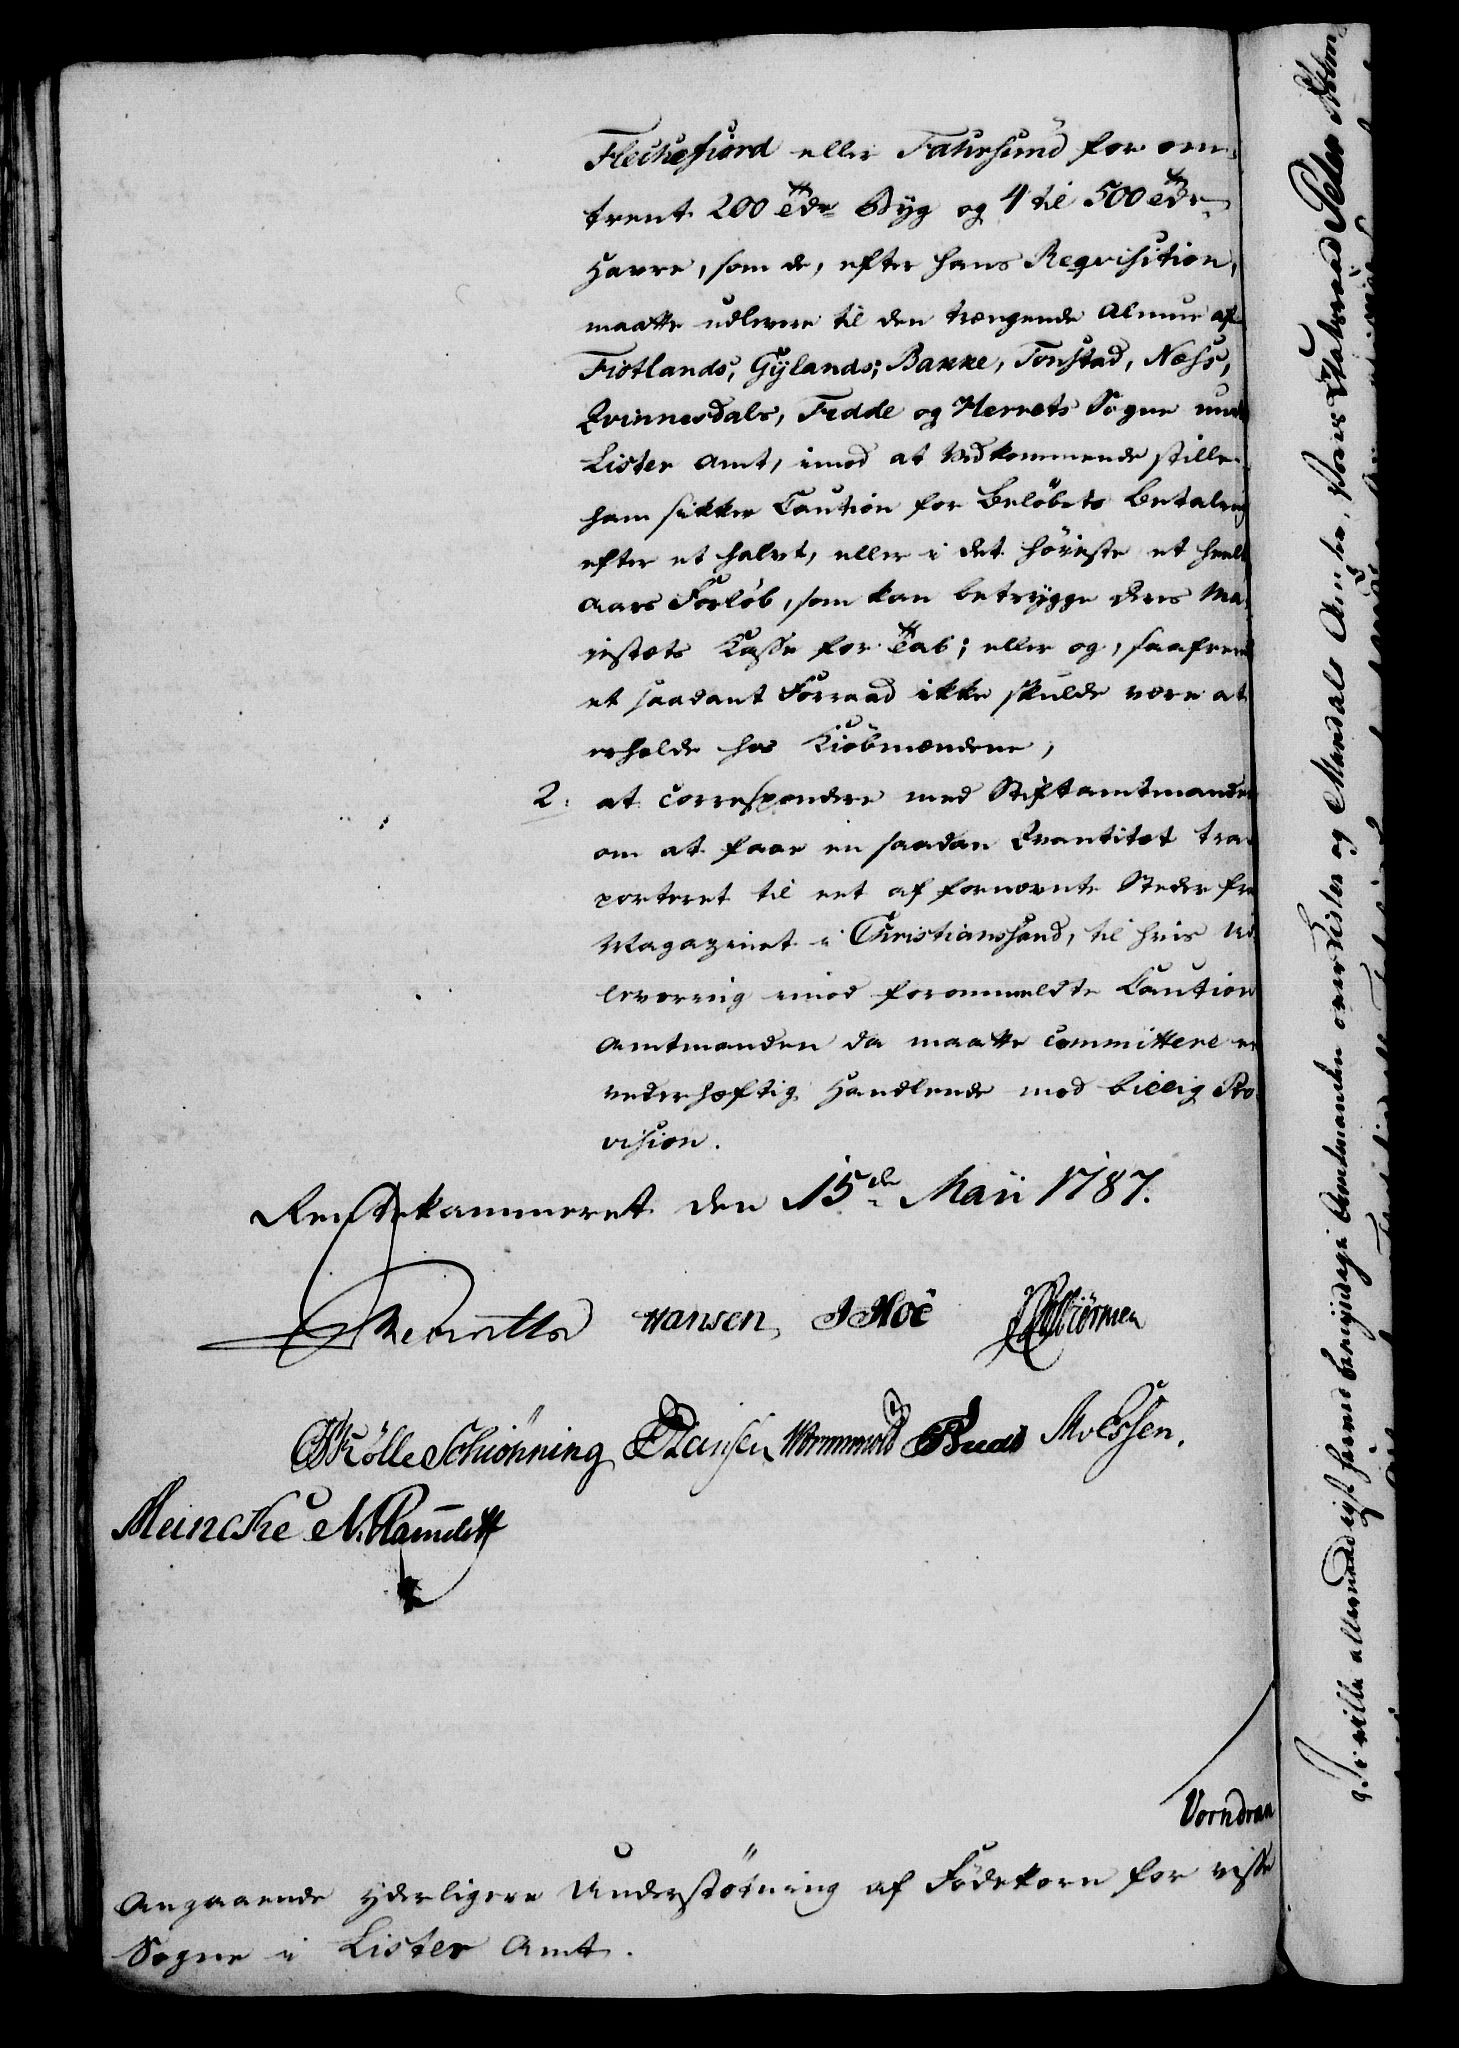 Fleckefiord eller Fahrsund for om-
trent 200 Tdr Byg og 4 til 500 Tdr
Havre, som de, efter hans Reqvisition,
maatte udlevere til den trængende Almue af
Fiotlands, Gÿlands, Bakke, Tonstad, Næss,
Qvinnesdals, Fedde og Herrets Sogne und
Lister Amt, imod at Vedkommende stille
ham sikker Caution for Beløbets Betaling
efter et halvt, eller i det høieste et heelt
Aars Forløb, som kan betrygge Deres Ma-
jestæts Kasse for Tab; eller og, saafremt
et saadant Forraad ikke skulde være at
erholde hos Kiøbmændene,
2. at correspondere med Stiftamtmanden
om at faae en saadan Qvantitet tra
porteret til eet af fornævnte Steder fra
Magazinet i Christianssand, til hvis Ud
levering imod forommeldte Caution
Amtmanden da maatte committere en
vederhæftig Handlende mod billig Pro
vision.
Rentekammeret den 15de Maii 1787.
Hansen, J Hoë
GKölle Schiönning Hansen Wormskiold MvEssen.
Meincke N.
Vorndran
Angaaende yderligere Understøtning af Fødekorn for visse
Sogne i Lister Amt.
Vi ville allernaadigst have bemyndiget Amtmanden over Lister og Mandals Amter, Vores Etatsraad Peter Holm